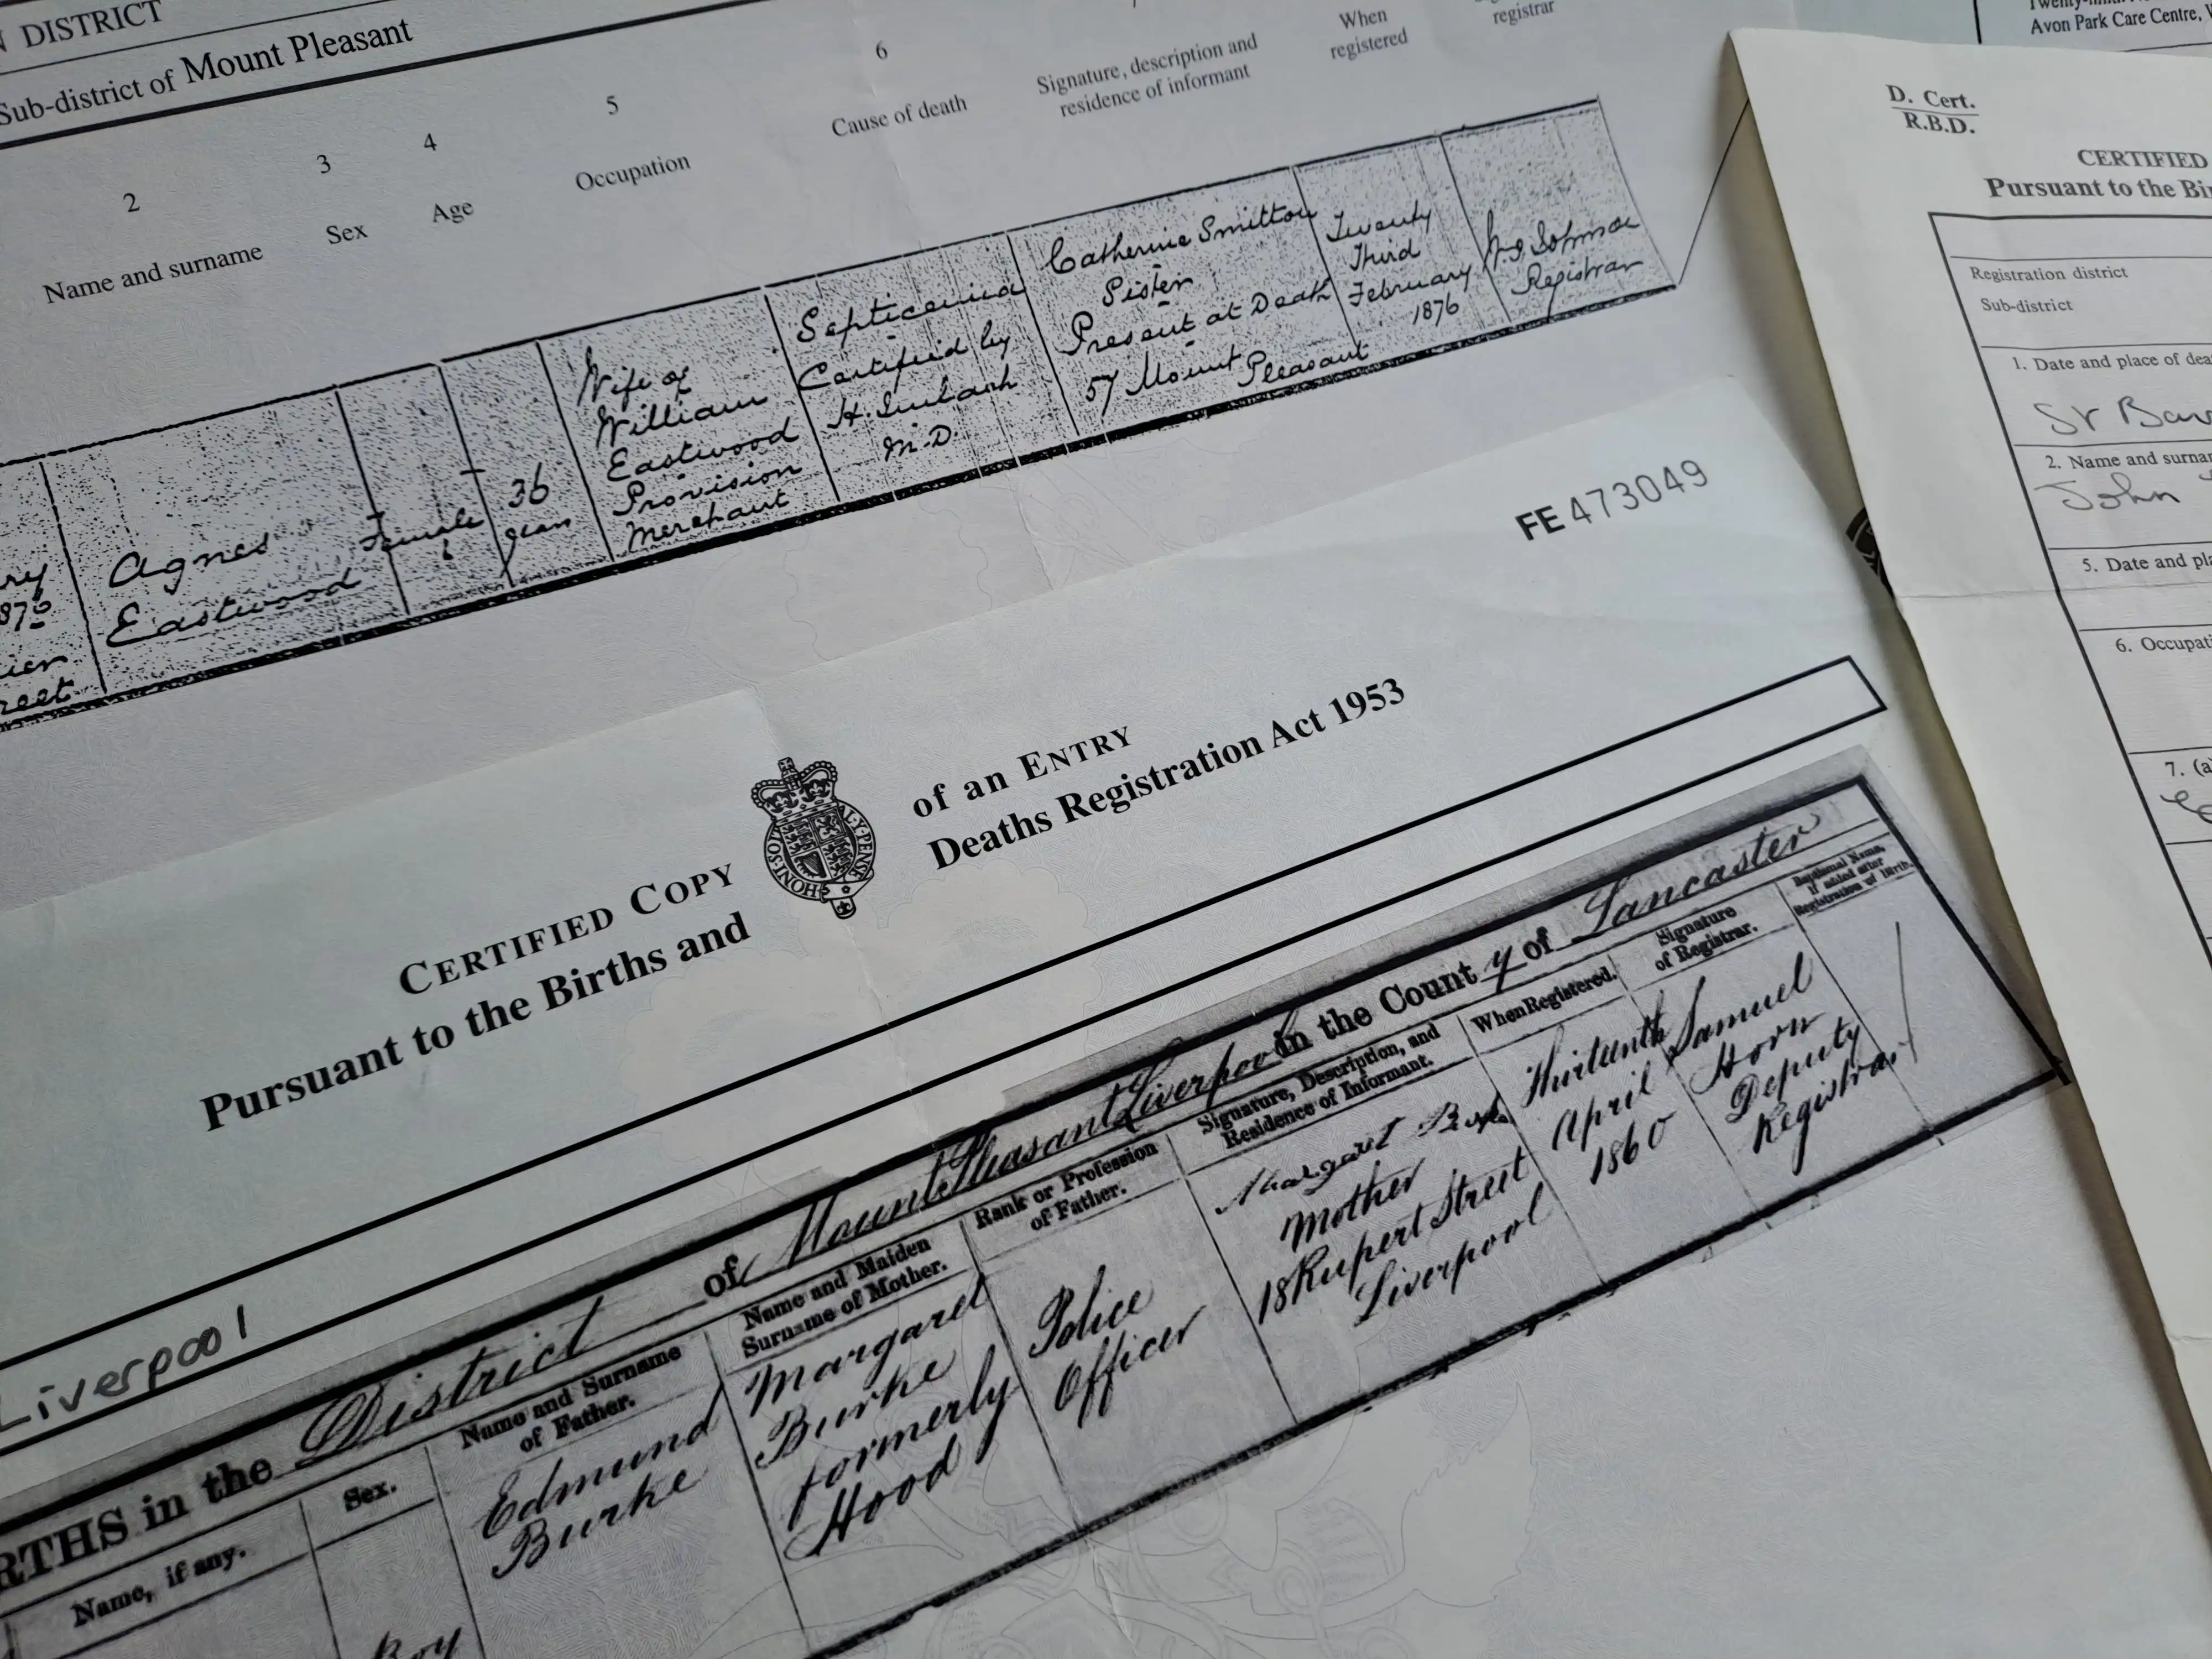 DISTRICT
Sub-district of Mount Pleasant
2 3 4 5 6
Name and surname Sex Age Occupation Cause of death Signature, description and residence of informant When registered registrar
Agnes
Eastwood
Female
36
years
Wife of
William
Eastwood
Provision
Merchant
Septicemia
Certified by
H.
M.D.
Catherine Smitton
Sister
Present at Death
57 Mount
Pleasant
Twenty
Third
February
1876
Registrar
FE 473049
CERTIFIED COPY of an ENTRY
Pursuant to the Births and Deaths Registration Act 1953
HONI·SOI
Y·PENSE
Liverpool
RTHS in the District of Mount Pleasant Liverpool in the County of Lancaster
Name, if any.
Sex.
Name and Surname
of Father.
Name and Maiden
Surname of Mother.
Rank or Profession
of Father.
Signature, Description, and
Residence of Informant.
When Registered.
Signature
of Registrar.
Baptismal Name,
if added after
Registration of Birth.
Boy
Edmund
Burke
Margaret
Burke
formerly
Hood
Police
Officer
Margaret
Mother
18 Rupert Street
Liverpool
Thirteenth
April
1860
Samuel
Horn
Deputy
Registrar
Avon Park Care Centre,
D. Cert.
R.B.D.
CERTIFIED
Pursuant to the Bi
Registration district
Sub-district
1. Date and place of dea
St
2. Name and surna
John
5. Date and pla
6. Occupati
7. (a)